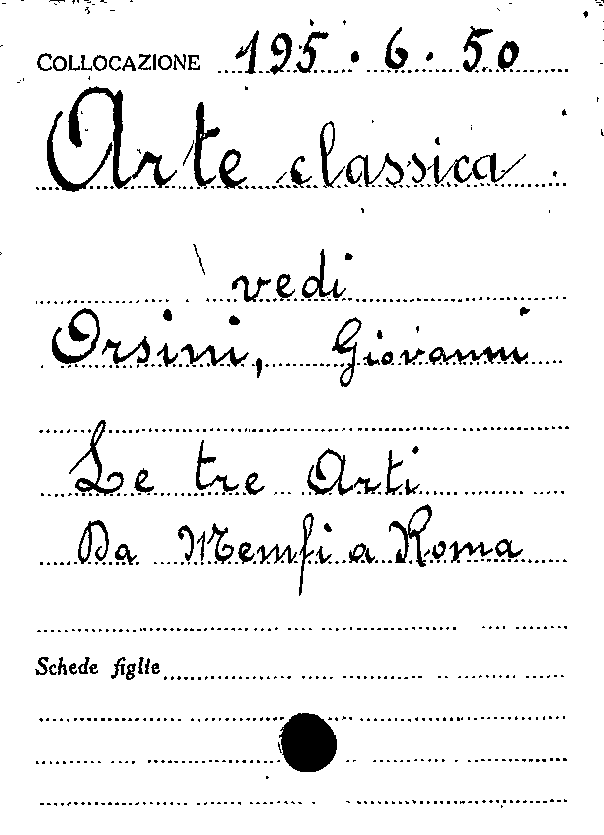 COLLOCAZIONE 195.6.50
Arte classica.
vedi
Orsini, Giovanni
Le tre Arti
Da Memfi a Roma
Schede figlie